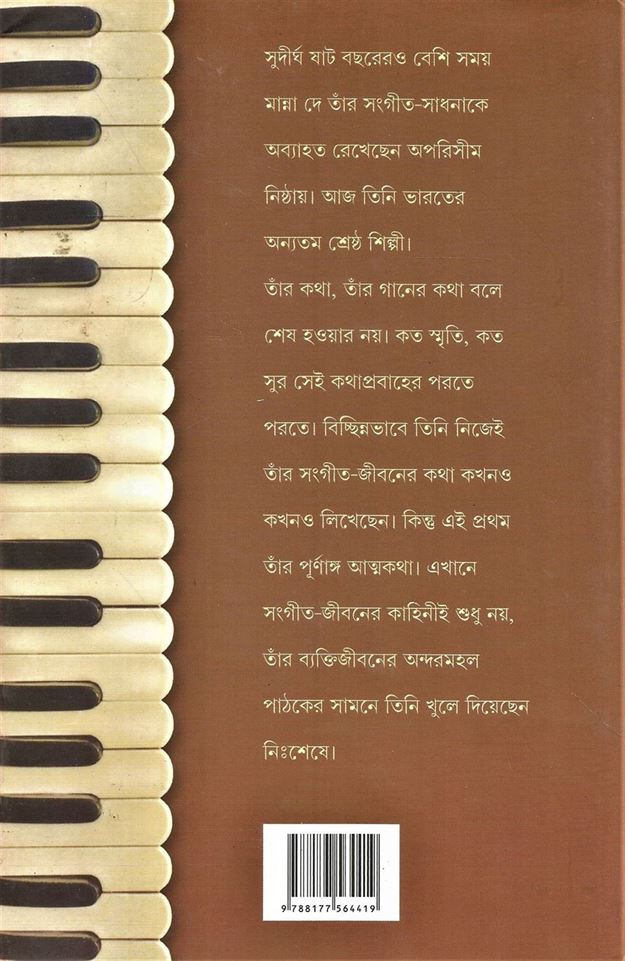 সুদীর্ঘ ষাট বছরেরও বেশি সময়
মান্না দে তাঁর সংগীত-সাধনাকে
অব্যাহত রেখেছেন অপরিসীম
নিষ্ঠায়। আজ তিনি ভারতের
অন্যতম শ্রেষ্ঠ শিল্পী।
তাঁর কথা, তাঁর গানের কথা বলে
শেষ হওয়ার নয়। কত স্মৃতি, কত
সুর সেই কথাপ্রবাহের পরতে
পরতে। বিচ্ছিন্নভাবে তিনি নিজেই
তাঁর সংগীত-জীবনের কথা কখনও
কখনও লিখেছেন। কিন্তু এই প্রথম
তাঁর পূর্ণাঙ্গ আত্মকথা। এখানে
সংগীত-জীবনের কাহিনীই শুধু নয়,
তাঁর ব্যক্তিজীবনের অন্দরমহল
পাঠকের সামনে তিনি খুলে দিয়েছেন
নিঃশেষে।
9 788177 564419